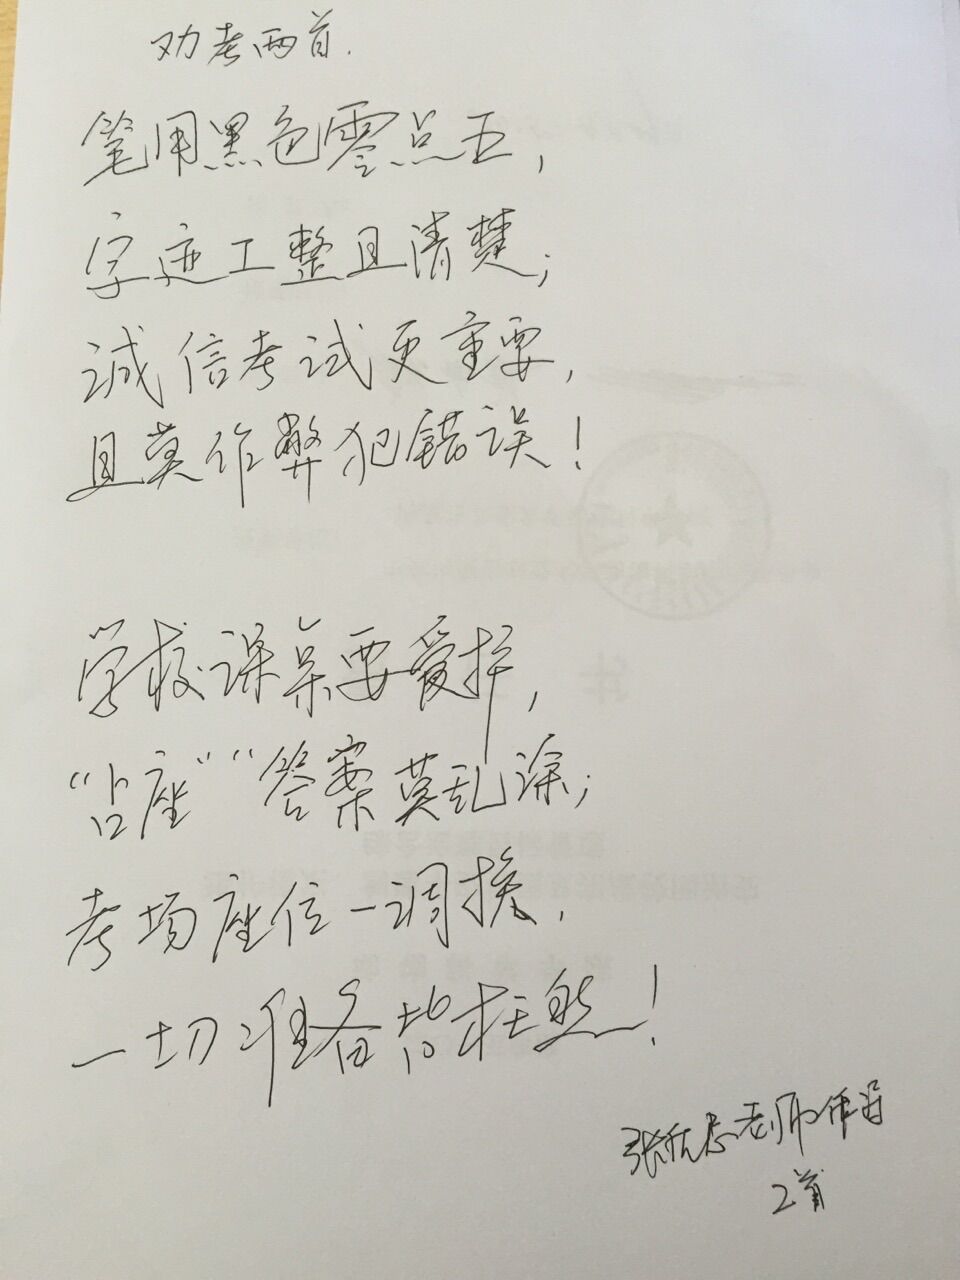 劝考两首.
笔用黑色零点五,
字迹工整且清楚;
诚信考试更重要,
且莫作弊犯错误!
学校课桌要爱护,
“占座”“答案莫乱涂;
考场座位一调换,
一切准备皆枉然!
张 老师作诗
2首